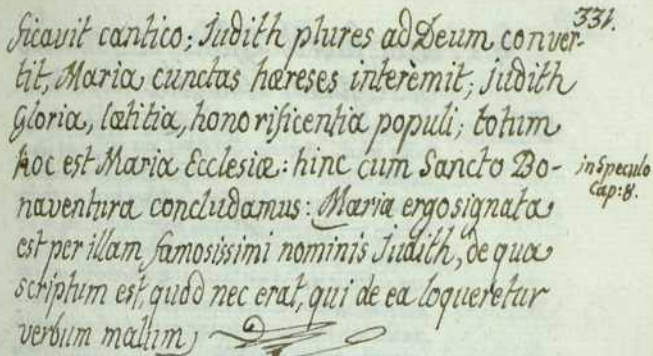 331.
ficavit cantico; Judith plures ad Deum conver-
tit, Maria cunctas hæreses interèmit; Judith
Gloria, lætitia, honorificentia populi; totum
hoc est Maria Ecclesiæ: hinc cum Sancto Bo-
naventura concludamus: Maria ergo signata
est per illam famosissimi nominis Judith, de qua
scriptum est, quòd nec erat, qui de ea loqueretur
verbum malum
in Speculo
Cap: 8.